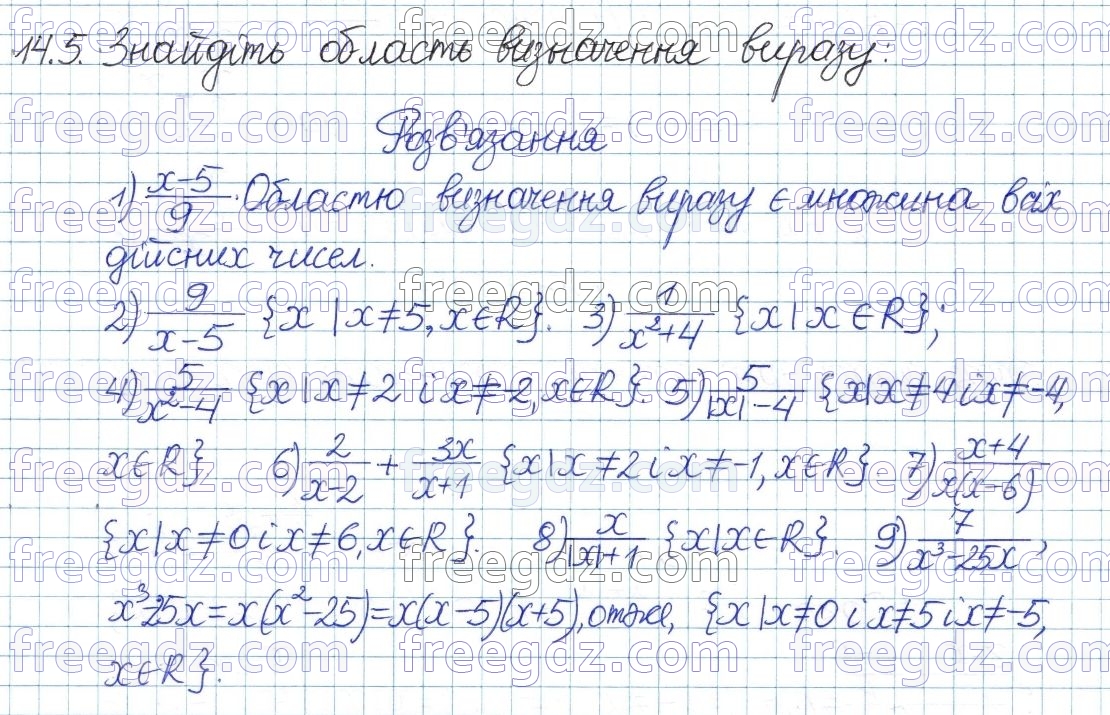 14.5. Знайдіть область визначення виразу:
Розв'язання
1) (x-5)/9. Областю визначення виразу є множина всіх
дійсних чисел.
2) 9/(x-5) {x | x≠5, x∈R}. 3) 1/(x²+4) {x | x∈R};
4) 5/(x²-4) {x | x≠2 і x≠-2, x∈R} 5) 5/(|x|-4) {x | x≠4 і x≠-4,
x∈R} 6) 2/(x-2) + 3x/(x+1) {x | x≠2 і x≠-1, x∈R} 7) (x+4)/(x(x-6))
{x | x≠0 і x≠6, x∈R}. 8) x/(|x|+1) {x | x∈R}. 9) 7/(x³-25x),
x³-25x=x(x²-25)=x(x-5)(x+5), отже, {x | x≠0 і x≠5 і x≠-5,
x∈R}.
freegdz.com